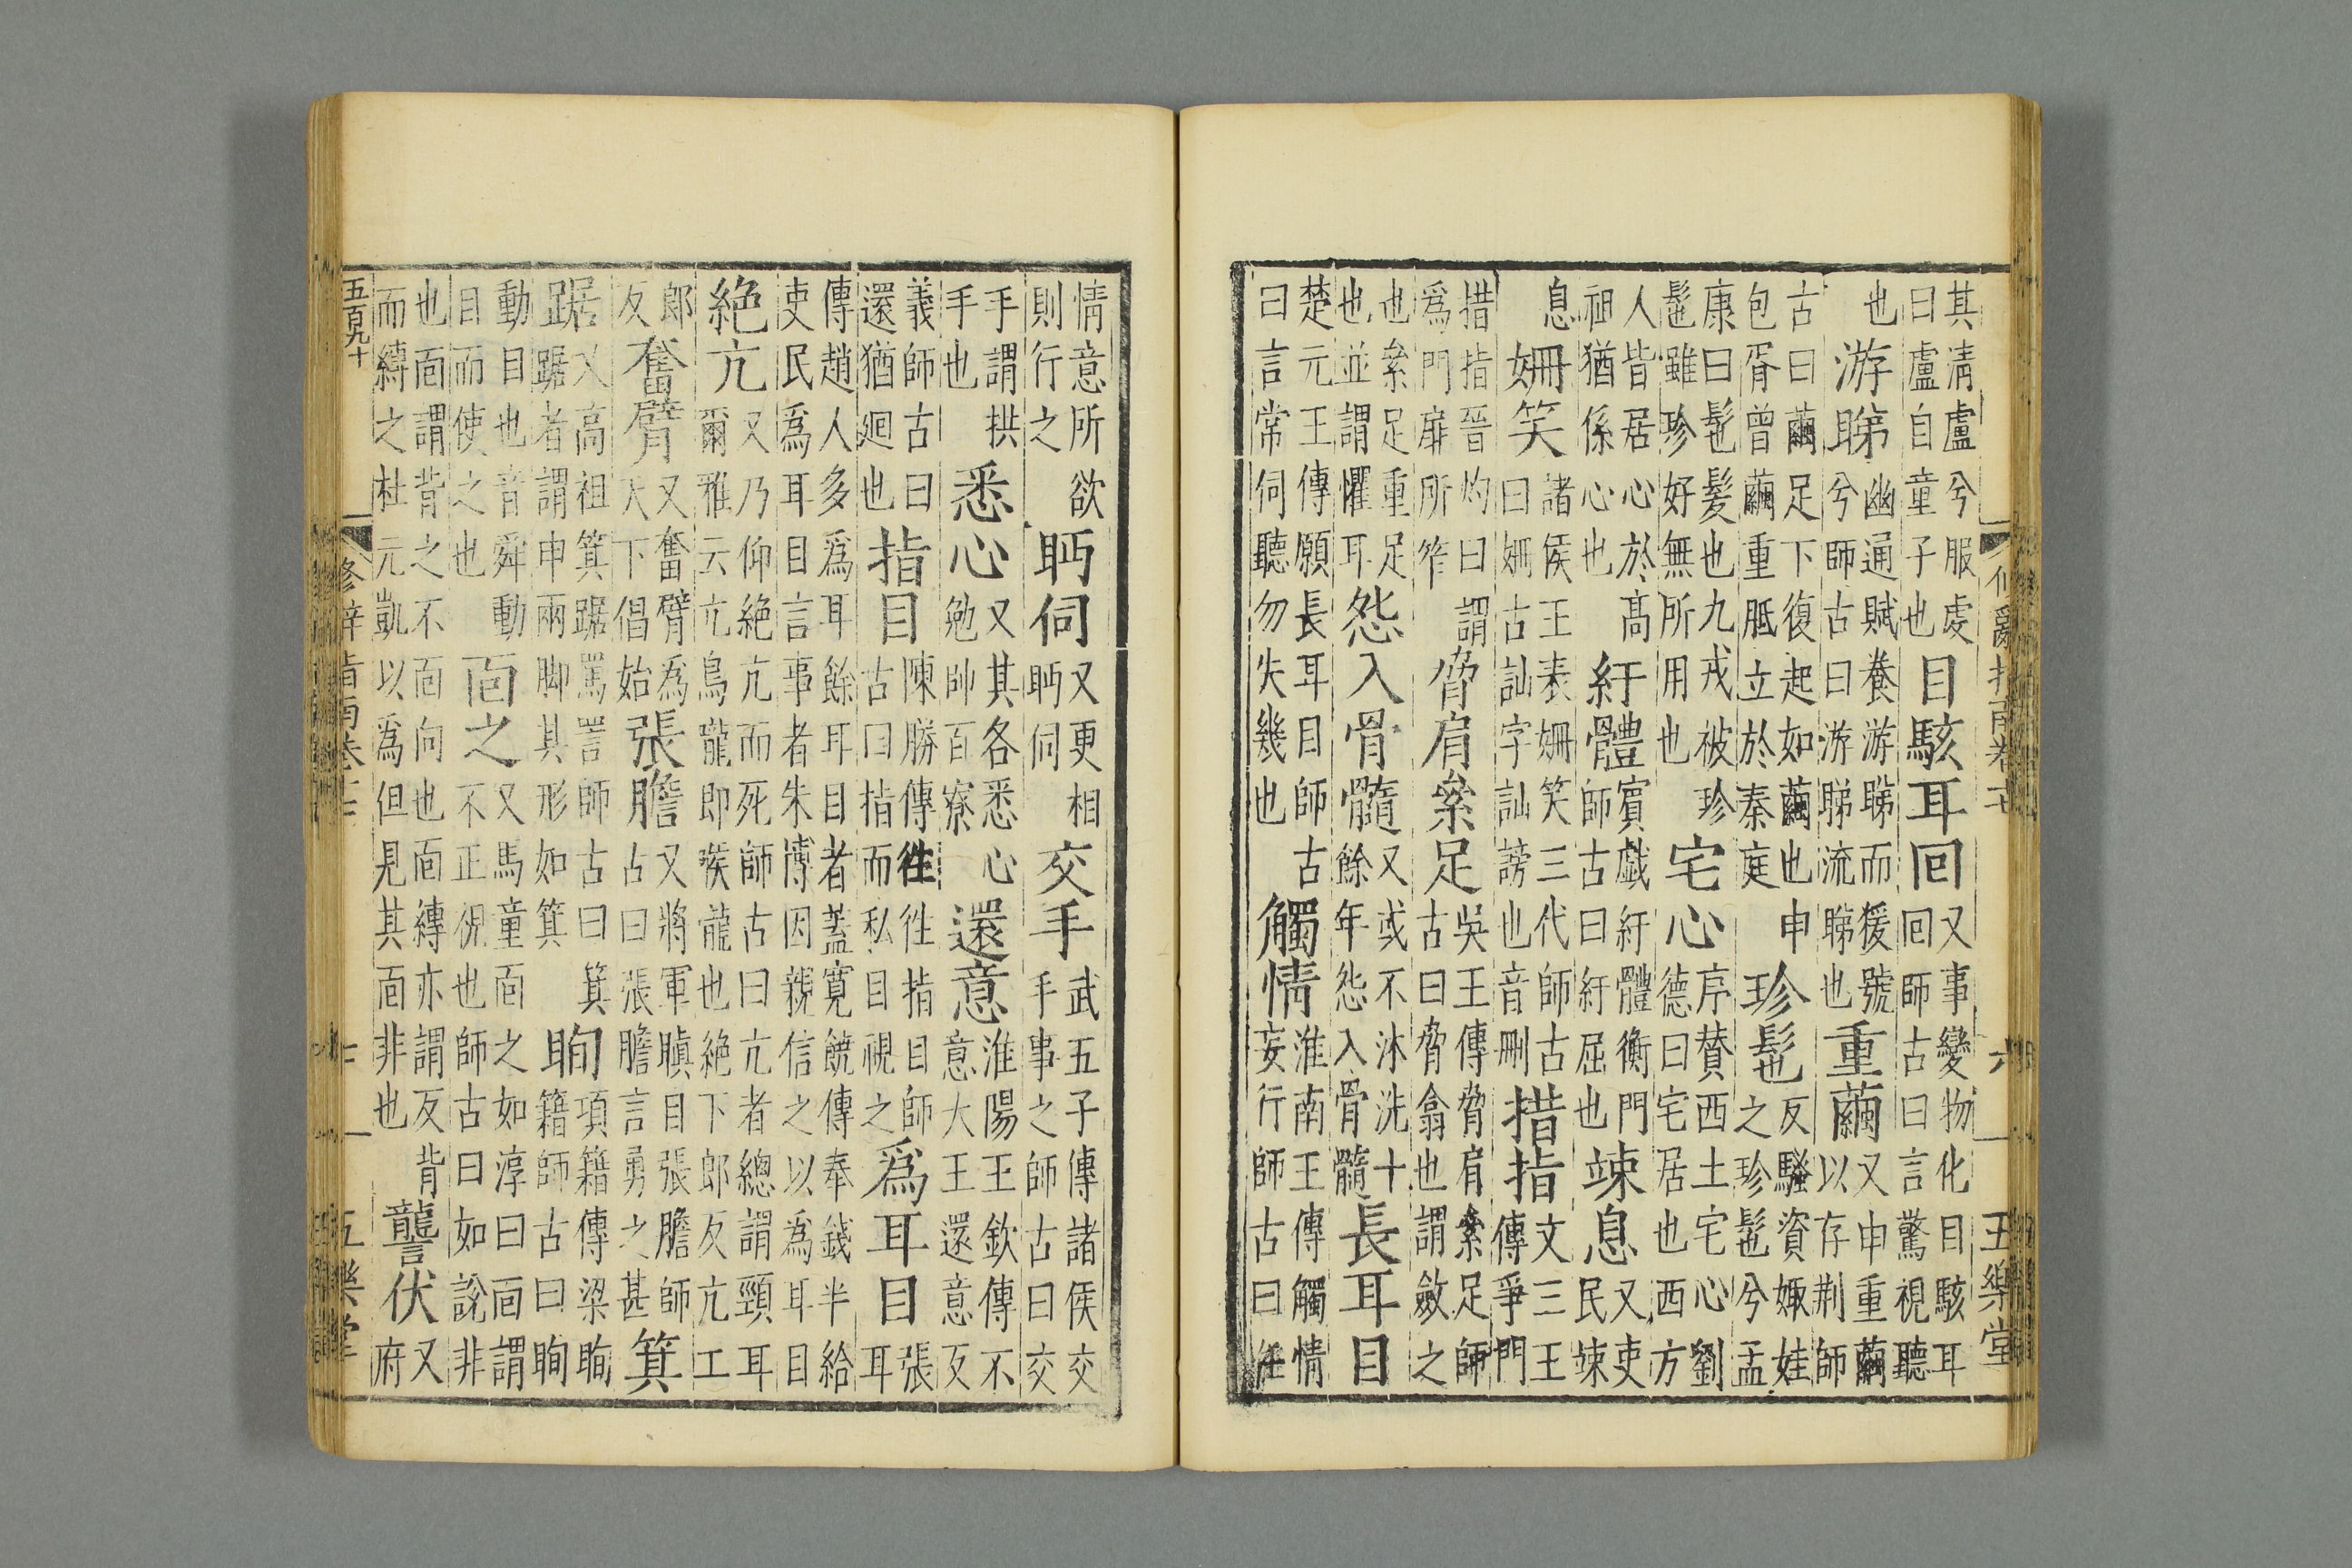 修辭指南卷十七　六　五樂堂
其清盧兮服虔
曰盧自童子也
目駭耳回
又事變物化目駭耳
回師古曰言驚視聽
也
游睇
幽通賦養游睇而猨號
兮師古曰游睇流睇也
重繭
又申重繭
以存荆師
古曰繭足下復起如繭也申
包胥曾繭重胝立於秦庭
珍髢
反騷資娵娃
之珍髢兮孟
康曰髢髮也九戎被珍
髢雖珍好無所用也
宅心
序賛西土宅心劉
德曰宅居也西方
人皆居心於髙
祖猶係心也
紆體
賓戲紆體衡門
師古曰紆屈也
竦息
又吏
民竦
息
姍笑
諸侯王表姍笑三代師古
曰姍古訕字訕謗也音刪
措指
文三王
傳爭門
措指晉灼曰謂
爲門扉所笮
脅肩絫足
吳王傳脅肩絫足師
古曰脅翕也謂斂之
也絫足重足
也並謂懼耳
怨入骨髓
又或不沐洗十
餘年怨入骨髓
長耳目
楚元王傳願長耳目師古
曰言常伺聽勿失幾也
觸情
淮南王傳觸情
妄行師古曰任
情意所欲
則行之
眄伺
又更相
眄伺
交手
武五子傳諸侯交
手事之師古曰交
手謂拱
手也
悉心
又其各悉心
勉帥百寮
還意
淮陽王欽傳不
意大王還意反
義師古曰
還猶廻也
指目
陳勝傳徃徃指目師
古曰指而私目視之
爲耳目
張
耳
傳趙人多爲耳餘耳目者蓋寬饒傳奉錢半給
吏民爲耳目言事者朱博因親信之以爲耳目
絶亢
又乃仰絶亢而死師古曰亢者總謂頸耳
爾雅云亢鳥嚨即喉嚨也絶下郎反亢工
郎
反
奮臂
又奮臂爲
天下倡始
張膽
又將軍瞋目張膽師
古曰張膽言勇之甚
箕
踞
又高祖箕踞罵詈師古曰箕
踞者謂申兩脚其形如箕
眴
項籍傳梁眴
籍師古曰眴
動目也音舜動
目而使之也
面之
又馬童面之如淳曰面謂
不正視也師古曰如說非
也面謂背之不面向也面縛亦謂反背
而縛之杜元凱以爲但見其面非也
讋伏
又
府
五百九十
修辭指南卷十七　七　五樂堂